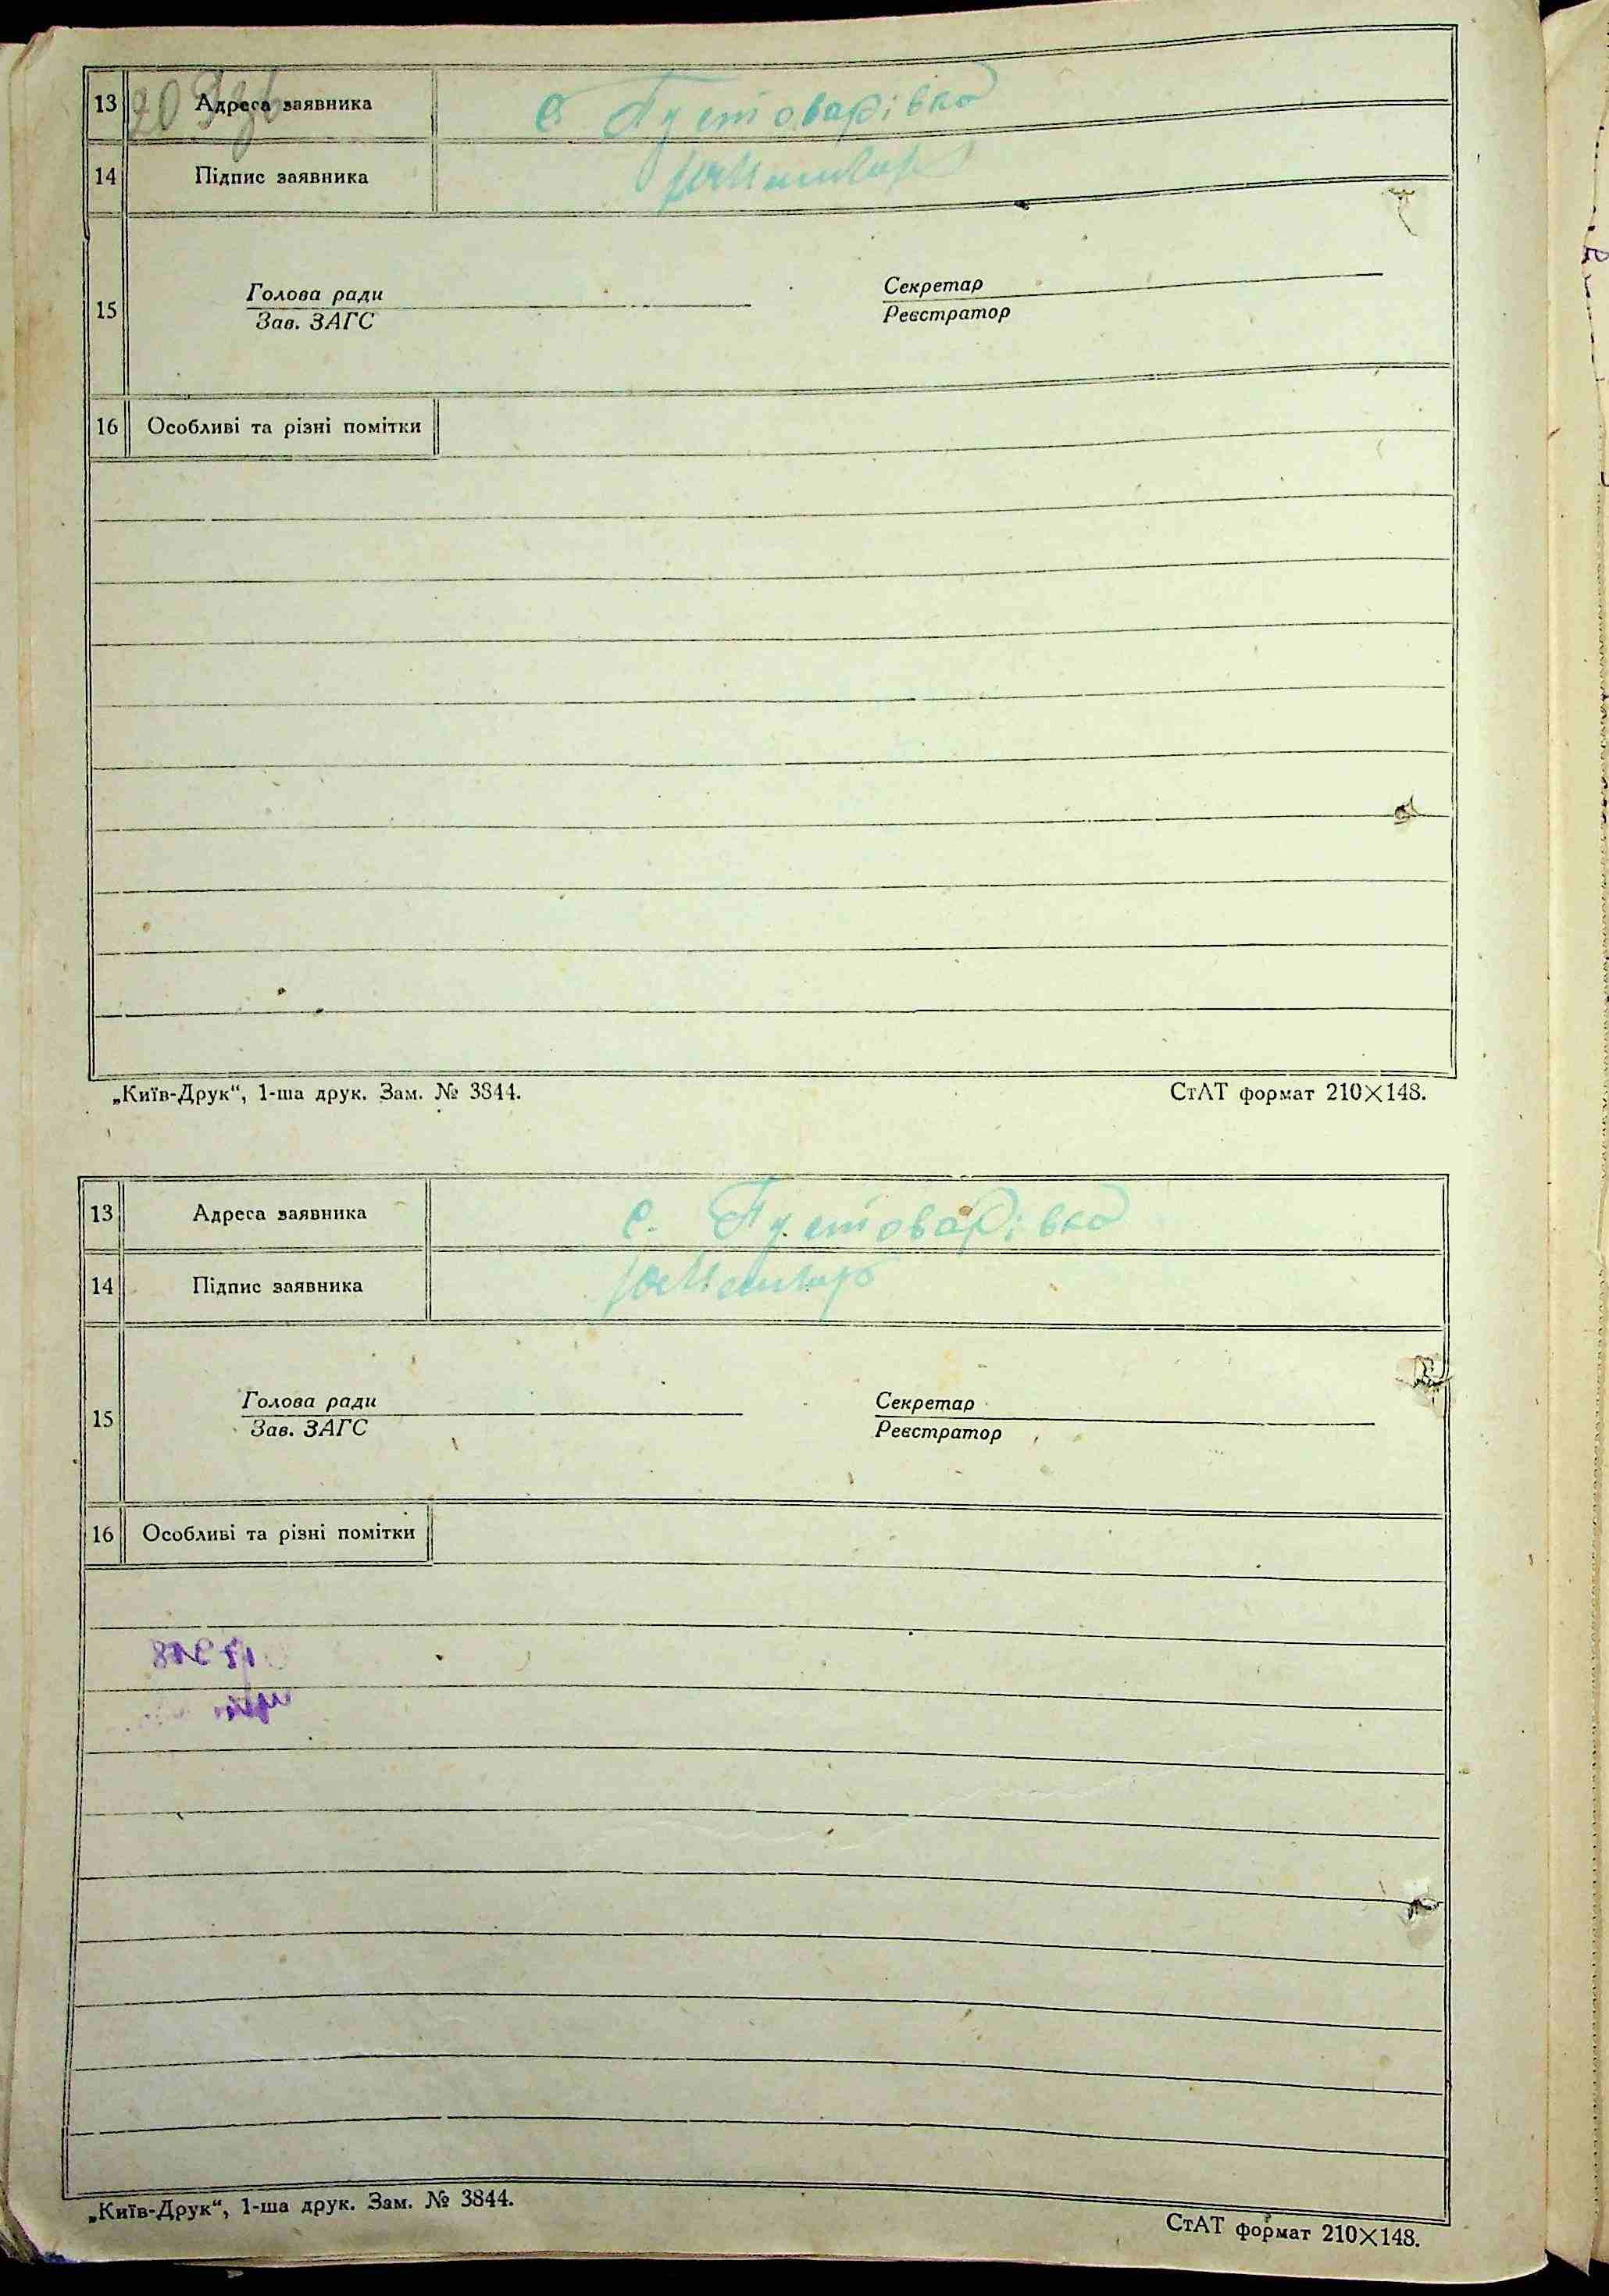 13 Адреса заявника с Пустоварівка
14 Підпис заявника
15 Голова ради Секретар
Зав. ЗАГС Реєстратор
16 Особливі та різні помітки
„Київ-Друк“, 1-ша друк. Зам. № 3844. СтАТ формат 210×148.
13 Адреса заявника с. Пустоварівка
14 Підпис заявника
15 Голова ради Секретар
Зав. ЗАГС Реєстратор
16 Особливі та різні помітки
„Київ-Друк“, 1-ша друк. Зам. № 3844. СтАТ формат 210×148.